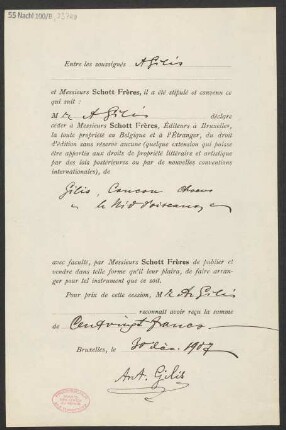 55 Nachl 100/B,
Entre les soussignés A Gilis
et Messieurs Schott Frères, il a été stipulé et convenu ce
qui suit :
M r A Gilis déclare
céder à Messieurs Schott Frères, Éditeurs à Bruxelles,
la toute propriété en Belgique et à l'Étranger, du droit
d'édition sans réserve aucune (quelque extension qui puisse
être apportée aux droits de propriété littéraire et artistique
par des lois postérieures ou par de nouvelles conventions
internationales), de
Gilis,
le Nid d'oiseau
avec faculté, par Messieurs Schott Frères de publier et
vendre dans telle forme qu'il leur plaira, de faire arran-
ger pour tel instrument que ce soit.
Pour prix de cette cession, M r A Gilis
reconnaît avoir reçu la somme
de Cent vingt francs
Bruxelles, le 30 déc. 1907
Ant. Gilis